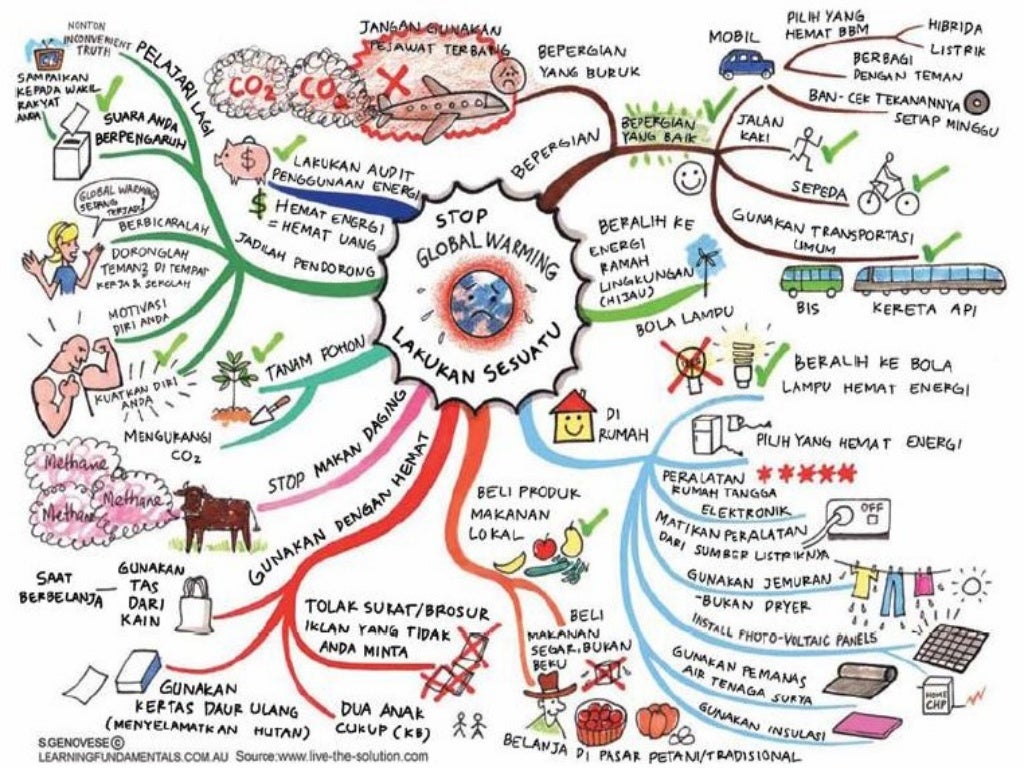 STOP
GLOBAL WARMING
LAKUKAN SESUATU
JANGAN GUNAKAN
PESAWAT TERBANG
CO2
CO2
BEPERGIAN
YANG BURUK
BEPERGIAN
BEPERGIAN
YANG BAIK
MOBIL
PILIH YANG
HEMAT BBM
HIBRIDA
LISTRIK
BERBAGI
DENGAN TEMAN
BAN- CEK TEKANANNYA
SETIAP MINGGU
JALAN
KAKI
SEPEDA
GUNAKAN TRANSPORTASI
UMUM
BIS
KERETA API
BERALIH KE
ENERGI
RAMAH
LINGKUNGAN
(HIJAU)
BOLA LAMPU
BERALIH KE BOLA
LAMPU HEMAT ENERGI
DI
RUMAH
PILIH YANG HEMAT ENERGI
PERALATAN
RUMAH TANGGA
ELEKTRONIK
OFF
MATIKAN PERALATAN
DARI SUMBER LISTRIKNYA
GUNAKAN JEMURAN
-BUKAN DRYER
INSTALL PHOTO-VOLTAIC PANELS
GUNAKAN PEMANAS
AIR TENAGA SURYA
HOME
CHP
GUNAKAN INSULASI
BELI PRODUK
MAKANAN
LOKAL
BELI
MAKANAN
SEGAR, BUKAN
BEKU
BELANJA DI PASAR PETANI/TRADISIONAL
GUNAKAN DENGAN HEMAT
SAAT
BERBELANJA
GUNAKAN
TAS
DARI
KAIN
TOLAK SURAT/BROSUR
IKLAN YANG TIDAK
ANDA MINTA
GUNAKAN
KERTAS DAUR ULANG
(MENYELAMATKAN HUTAN)
DUA ANAK
CUKUP (KB)
STOP MAKAN DAGING
Methane
Methane
Methane
TANAM POHON
MENGURANGI
CO2
JADILAH PENDORONG
PELAJARI LAGI
NONTON
INCONVENIENT
TRUTH
SAMPAIKAN
KEPADA WAKIL
RAKYAT
ANDA
SUARA ANDA
BERPENGARUH
GLOBAL WARMING
SEDANG
TERJADI!
BERBICARALAH
DORONGLAH
TEMAN2 DI TEMPAT
KERJA & SEKOLAH
MOTIVASI
DIRI ANDA
KUATKAN DIRI
ANDA
LAKUKAN AUDIT
PENGGUNAAN ENERGI
$
$ HEMAT ENERGI
= HEMAT UANG
S.GENOVESE ©
LEARNINGFUNDAMENTALS.COM.AU Source:www.live-the-solution.com